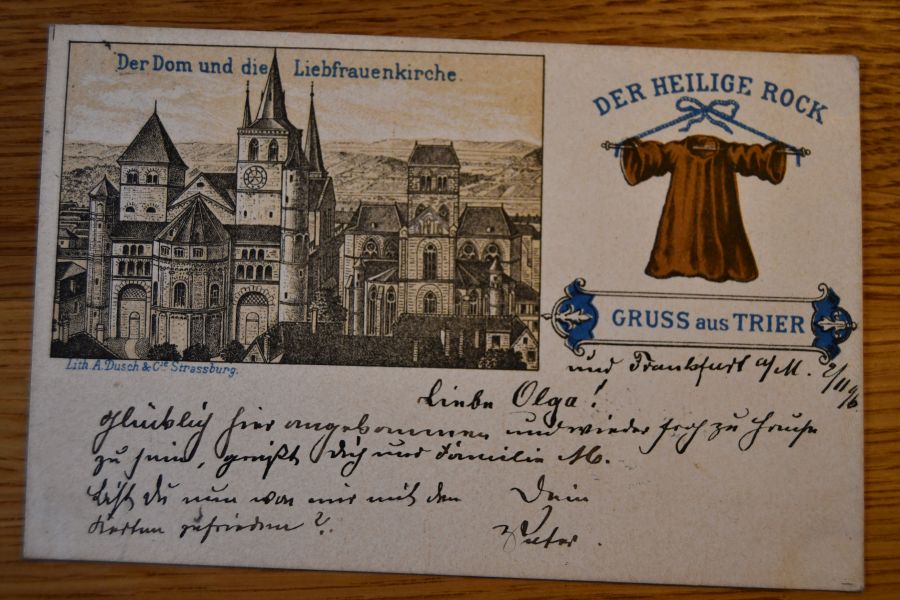 Der Dom und die Liebfrauenkirche.
DER HEILIGE ROCK
GRUSS aus TRIER
Lith. A. Dusch & Cie Strassburg.
und Frankfurt a/M. 2/11 96
Liebe Olga!
Glücklich hier angekommen und wieder froh zu Hause
zu sein, grüßt Dich und Familie M.
Bist Du nun von mir mit den
Karten zufrieden?
Dein